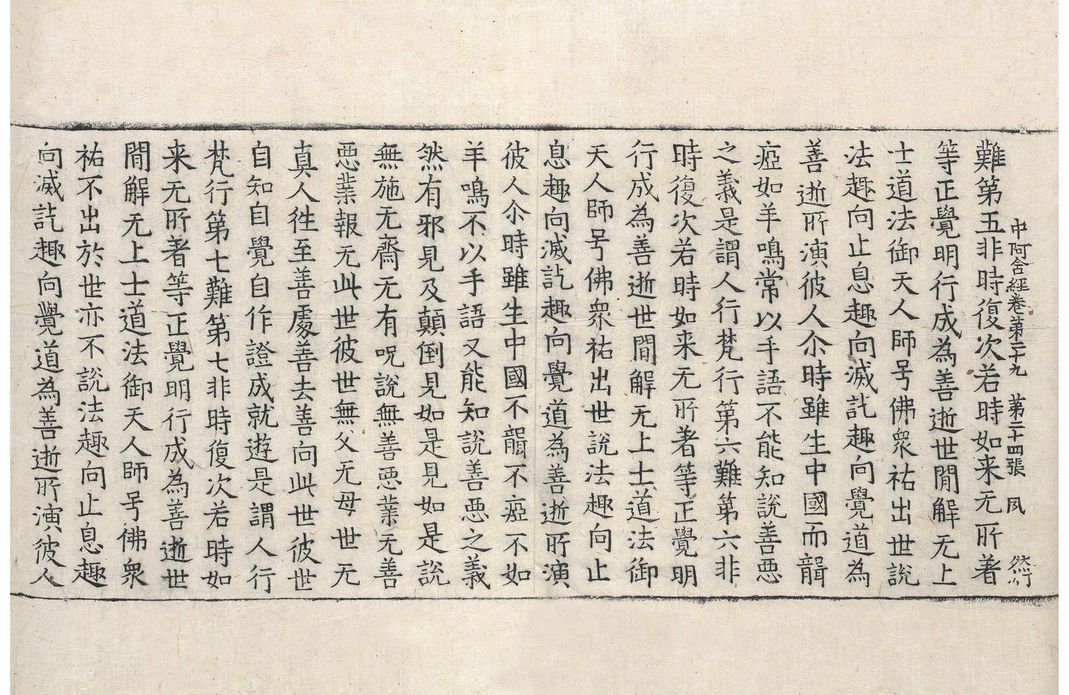 中阿含經卷第二十九　第二十四張　夙
難第五非時復次若時如来无所著
等正覺明行成為善逝世間解无上
士道法御天人師号佛衆祐出世說
法趣向止息趣向滅訖趣向覺道為
善逝所演彼人尒時雖生中國而聾
瘂如羊鳴常以手語不能知說善惡
之義是謂人行梵行第六難第六非
時復次若時如来无所著等正覺明
行成為善逝世間解无上士道法御
天人師号佛衆祐出世說法趣向止
息趣向滅訖趣向覺道為善逝所演
彼人尒時雖生中國不聾不瘂不如
羊鳴不以手語又能知說善惡之義
然有邪見及顛倒見如是見如是說
無施无齋无有呪說無善惡業无善
惡業報无此世彼世無父无母世无
真人往至善處善去善向此世彼世
自知自覺自作證成就遊是謂人行
梵行第七難第七非時復次若時如
来无所著等正覺明行成為善逝世
間解无上士道法御天人師号佛衆
祐不出於世亦不說法趣向止息趣
向滅訖趣向覺道為善逝所演彼人